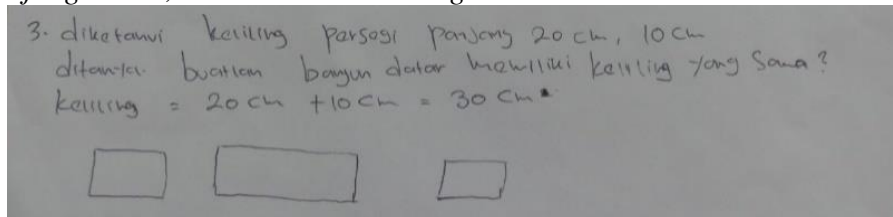 3. diketahui keliling persegi panjang 20 cm, 10 cm
ditanya buatlah bangun datar memiliki keliling yang sama?
keliling = 20 cm + 10 cm = 30 cm